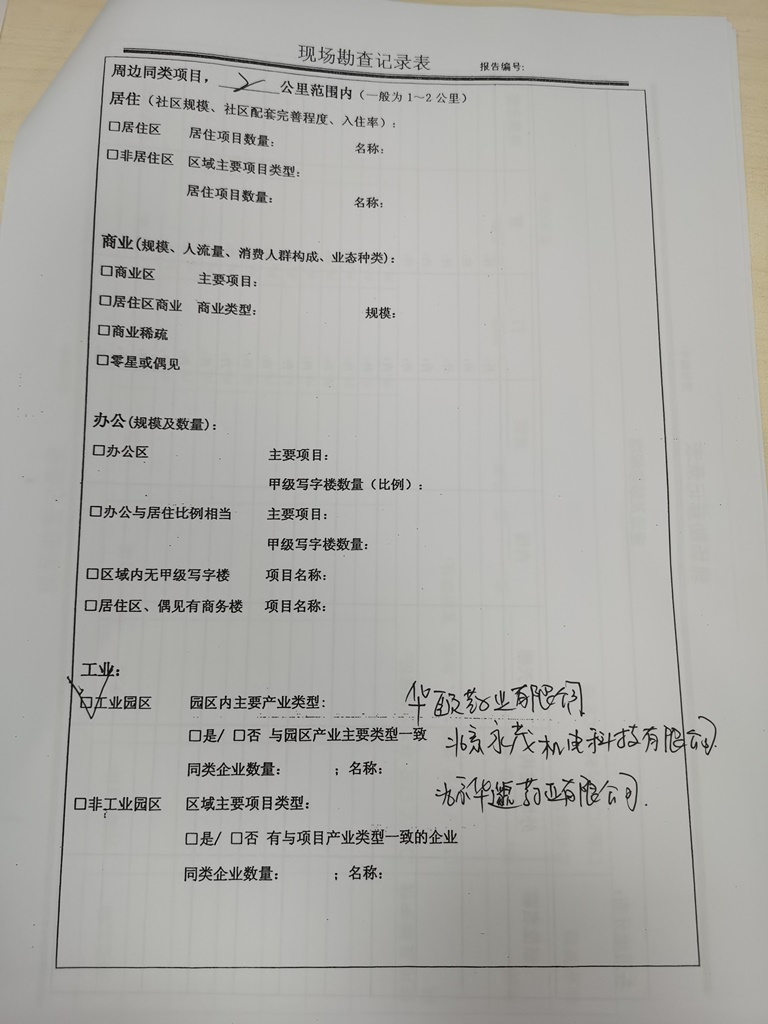 现场勘查记录表 报告编号:
周边同类项目，2公里范围内（一般为1～2公里）
居住（社区规模、社区配套完善程度、入住率）:
□居住区 居住项目数量: 名称:
□非居住区 区域主要项目类型:
居住项目数量: 名称:
商业(规模、人流量、消费人群构成、业态种类):
□商业区 主要项目:
□居住区商业 商业类型: 规模:
□商业稀疏
□零星或偶见
办公(规模及数量):
□办公区 主要项目:
甲级写字楼数量（比例）:
□办公与居住比例相当 主要项目:
甲级写字楼数量:
□区域内无甲级写字楼 项目名称:
□居住区、偶见有商务楼 项目名称:
工业:
☑工业园区 园区内主要产业类型: 华颐药业有限公司
□是/ □否 与园区产业主要类型一致 北京永茂机电科技有限公司
同类企业数量: ；名称: 北京华 药业有限公司.
□非工业园区 区域主要项目类型:
□是/ □否 有与项目产业类型一致的企业
同类企业数量: ；名称: